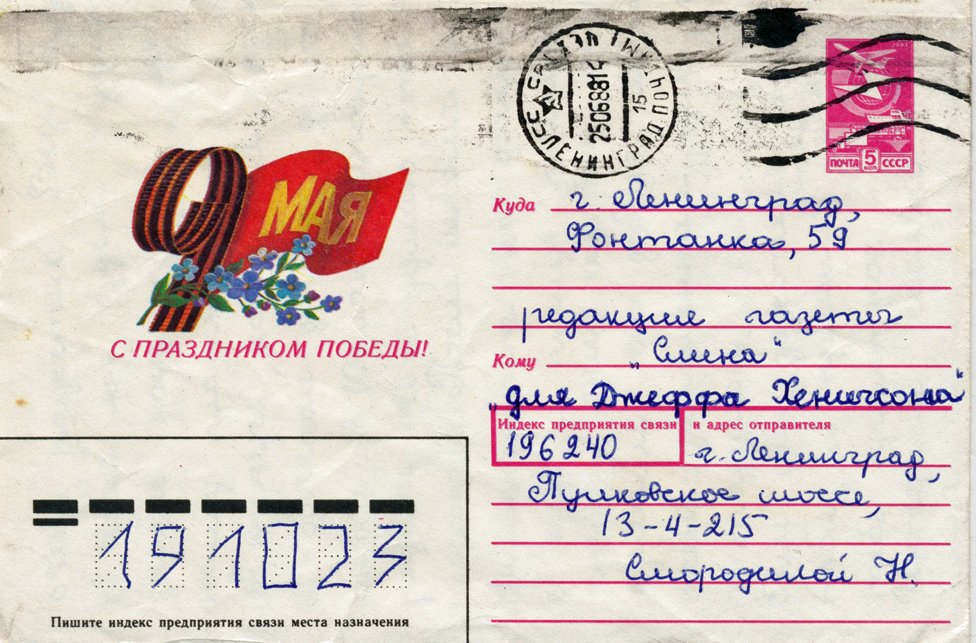 ПОЧТА 5 КОП СССР
ЛЕНИНГРАД
25068814
15
9 МАЯ
С ПРАЗДНИКОМ ПОБЕДЫ!
Куда г. Ленинград,
Фонтанка, 59
редакция газеты
Кому "Смена"
"для Джеффа Хениксона"
Индекс предприятия связи и адрес отправителя
196240 г. Ленинград,
Пулковское шоссе,
13-4-215
Смородиной Н.
191023
Пишите индекс предприятия связи места назначения